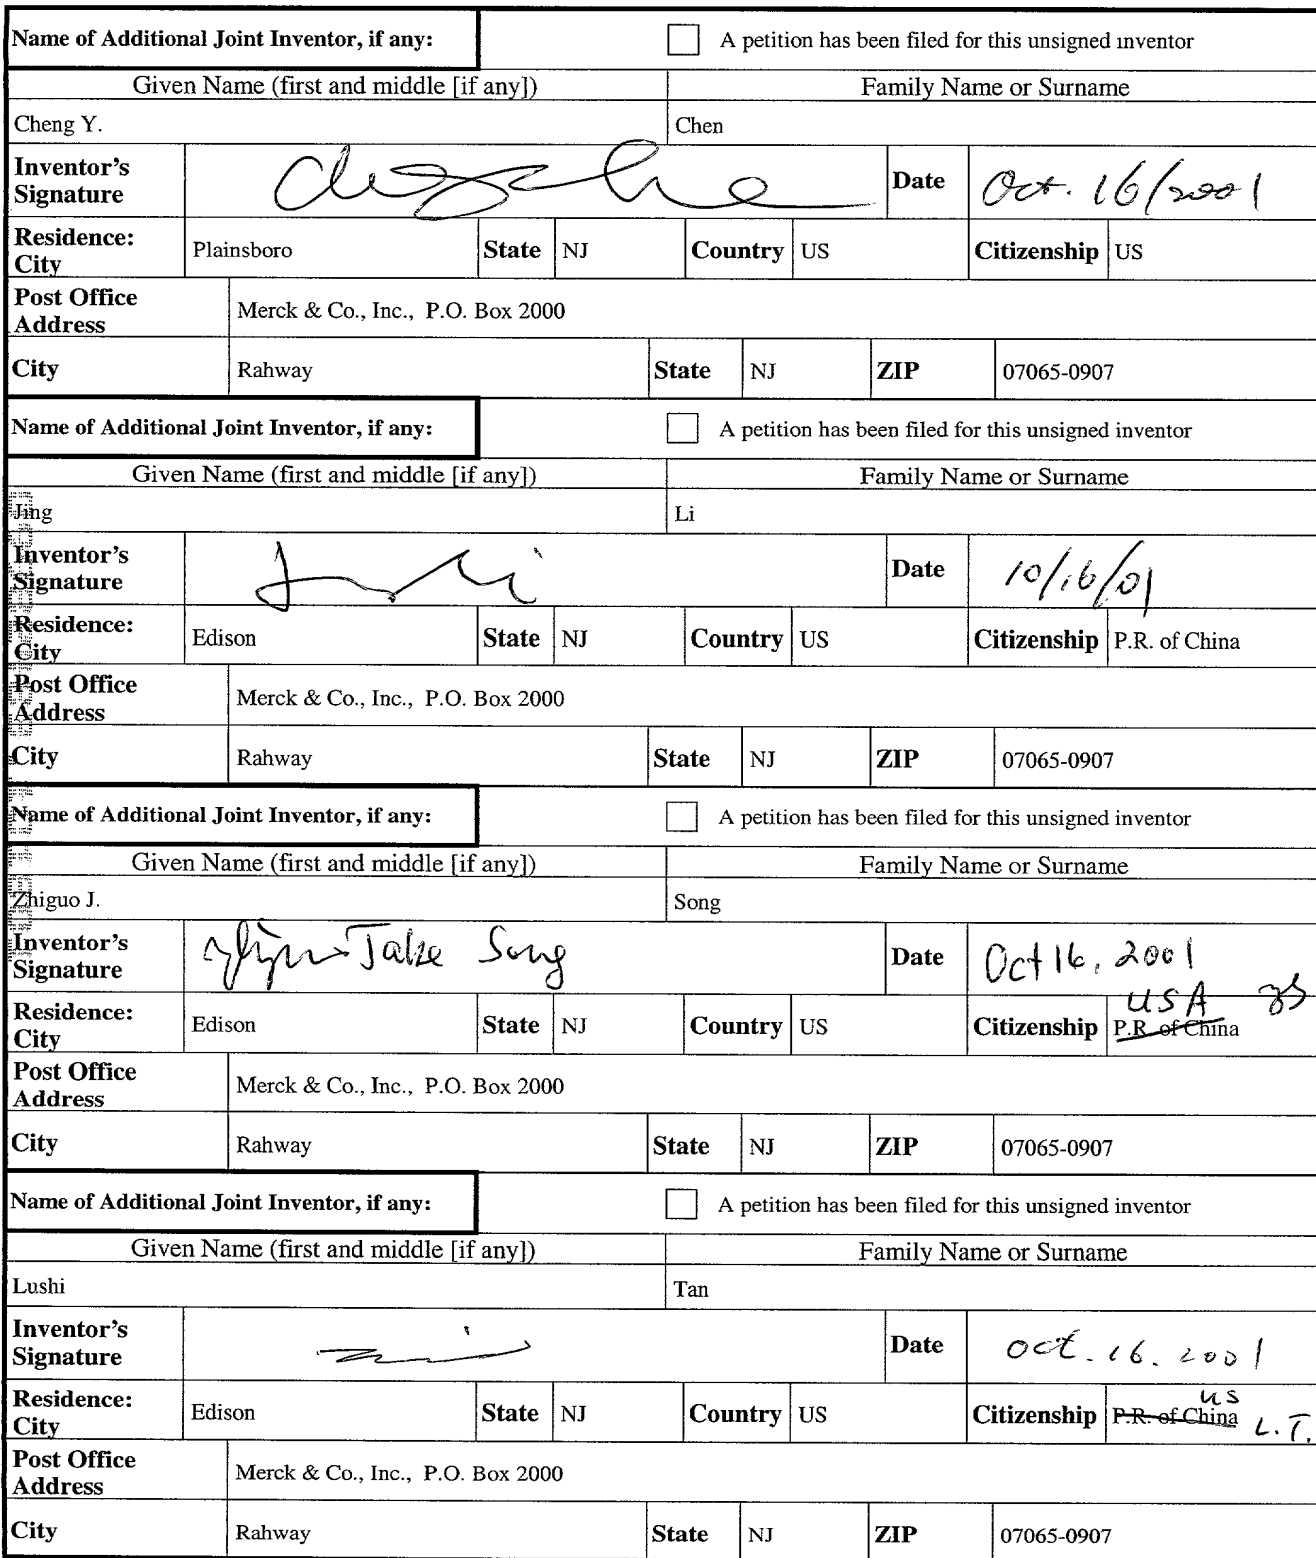 Name of Additional Joint Inventor, if any: A petition has been filed for this unsigned inventor
Given Name (first and middle [if any]) Family Name or Surname
Cheng Y. Chen
Inventor's Signature Date Oct. 16/2001
Residence: City Plainsboro State NJ Country US Citizenship US
Post Office Address Merck & Co., Inc., P.O. Box 2000
City Rahway State NJ ZIP 07065-0907
Name of Additional Joint Inventor, if any: A petition has been filed for this unsigned inventor
Given Name (first and middle [if any]) Family Name or Surname
Jing Li
Inventor's Signature Date 10/16/01
Residence: City Edison State NJ Country US Citizenship P.R. of China
Post Office Address Merck & Co., Inc., P.O. Box 2000
City Rahway State NJ ZIP 07065-0907
Name of Additional Joint Inventor, if any: A petition has been filed for this unsigned inventor
Given Name (first and middle [if any]) Family Name or Surname
Zhiguo J. Song
Inventor's Signature Jake Song Date Oct 16, 2001
USA zs
Residence: City Edison State NJ Country US Citizenship P.R. of China
Post Office Address Merck & Co., Inc., P.O. Box 2000
City Rahway State NJ ZIP 07065-0907
Name of Additional Joint Inventor, if any: A petition has been filed for this unsigned inventor
Given Name (first and middle [if any]) Family Name or Surname
Lushi Tan
Inventor's Signature Date Oct. 16. 2001
US
Residence: City Edison State NJ Country US Citizenship P.R. of China L.T.
Post Office Address Merck & Co., Inc., P.O. Box 2000
City Rahway State NJ ZIP 07065-0907